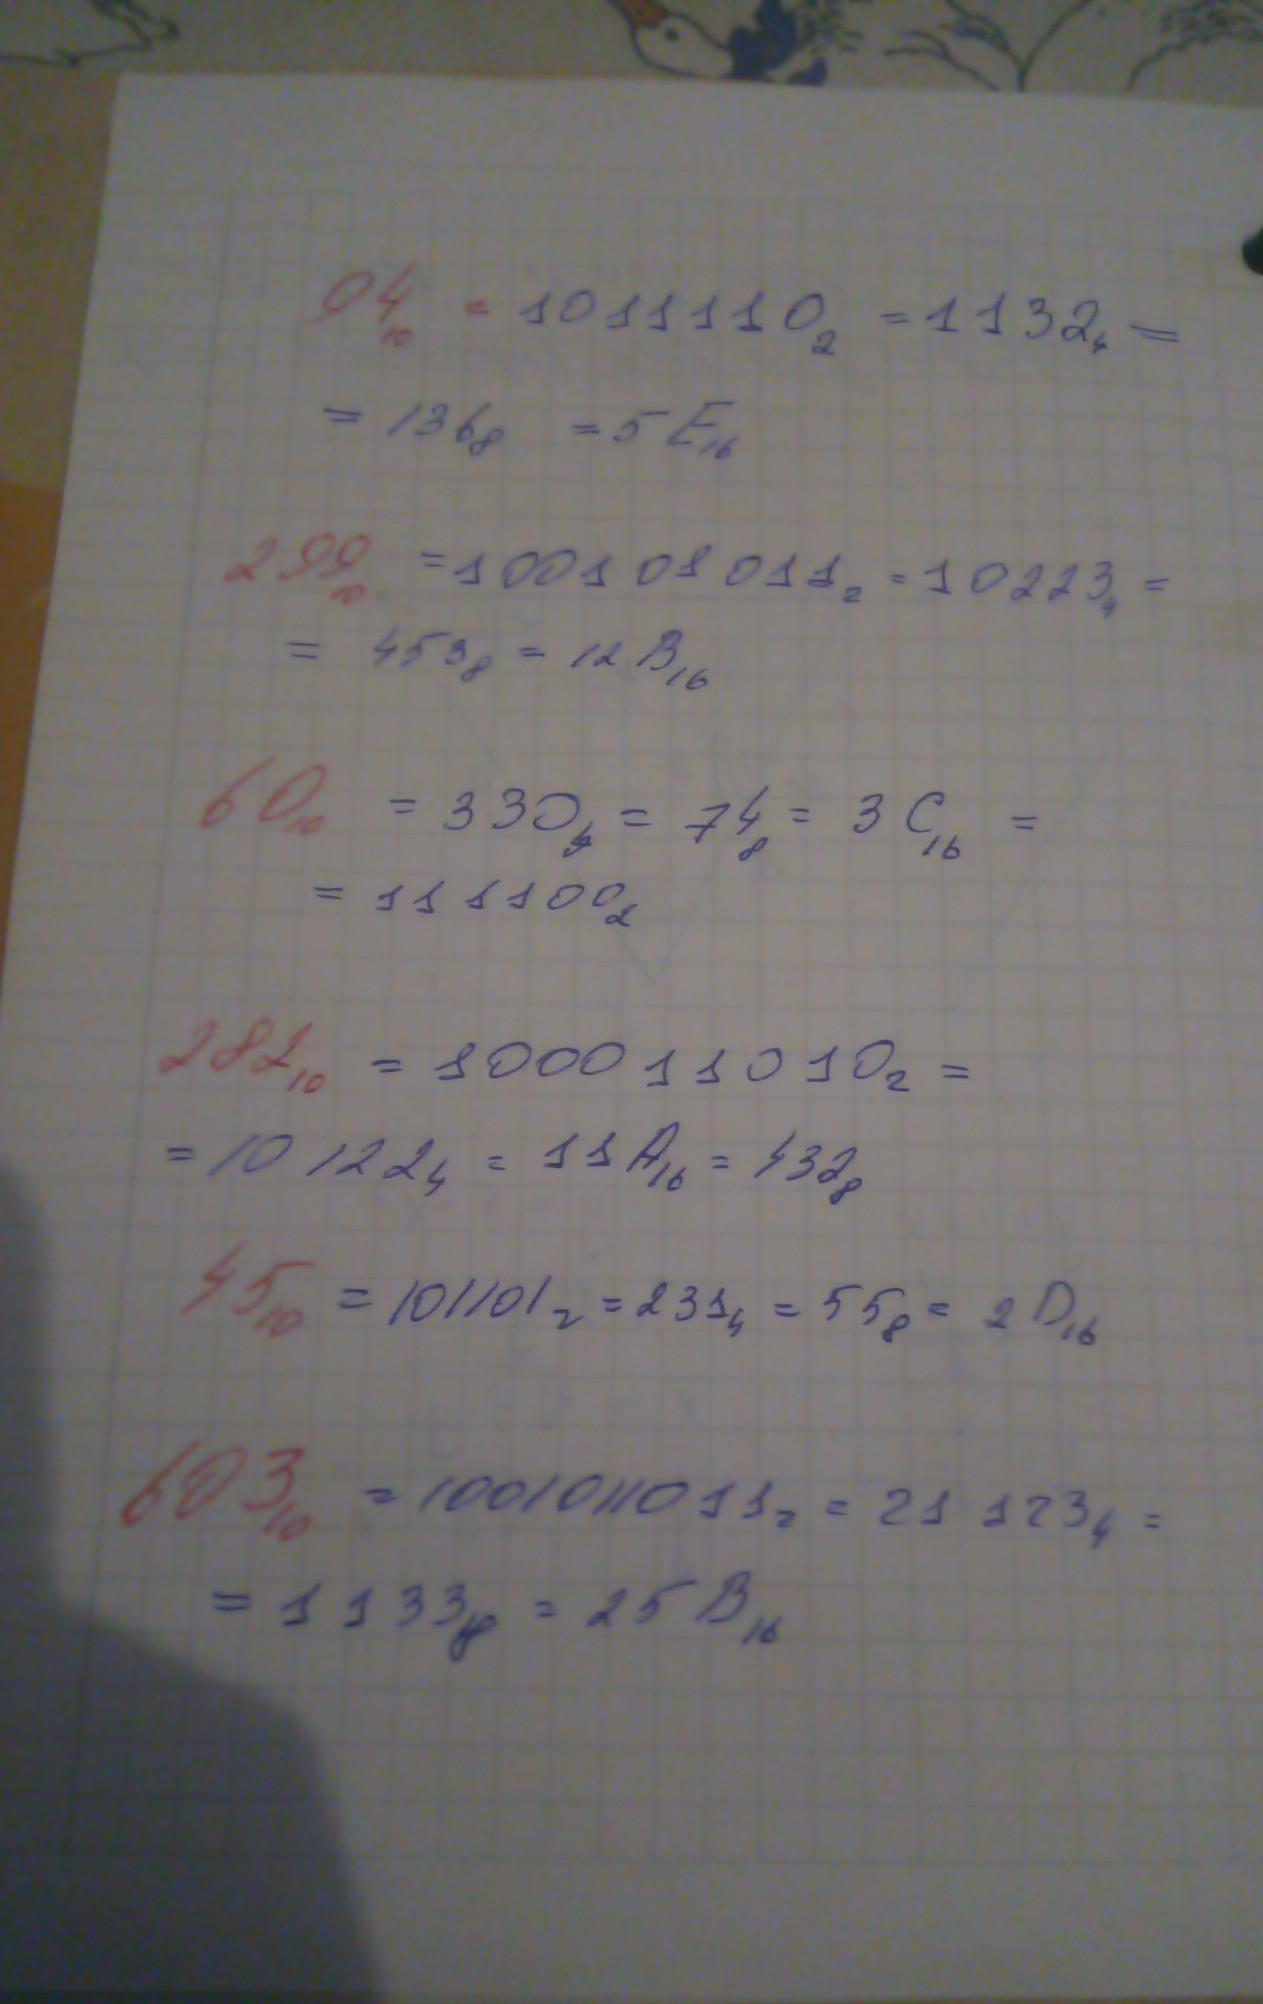 94₁₀ = 1011110₂ = 1132₄ =
= 136₈ = 5E₁₆
299₁₀ = 100101011₂ = 10223₄ =
= 453₈ = 12B₁₆
60₁₀ = 330₄ = 74₈ = 3C₁₆ =
= 111100₂
282₁₀ = 100011010₂ =
= 10122₄ = 11A₁₆ = 432₈
45₁₀ = 101101₂ = 231₄ = 55₈ = 2D₁₆
603₁₀ = 1001011011₂ = 21123₄ =
= 1133₈ = 25B₁₆